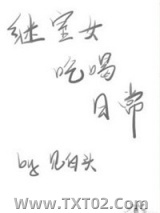 继室女
吃喝
日常
by 见白头
WWW.TXT02.COM